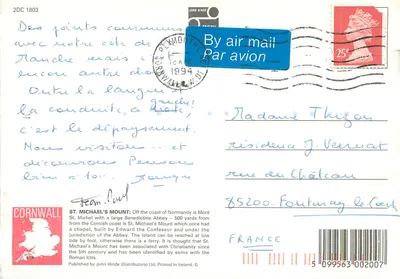 2DC 1803
Des points communs
avec notre côté de la
Manche mais
encore autre
Outre la langue et
la conduite à gauche!
c'est le dépaysement.
Nous visitons ... et
découvrons Penzance
bien à toi.
By air mail
Par avion
1994
25p
Madame
résidence J. Vernat
rue du Château
85200 - Fontenay le Comte
FRANCE
CORNWALL
ST. MICHAEL'S MOUNT: Off the coast of Normandy is Mont
St. Michel with a large Benedictine Abbey - 500 yards from
from the Cornish coast is St. Michael's Mount which once had
a chapel, built by Edward the Confessor and under the
jurisdiction of the Abbey. The island can be reached at low
tide by foot, otherwise there is a ferry. It is thought that St.
Michael's Mount has been associated with Christianity since
the 5th century and has been identified by some with the
Roman Ictis.
Published by John Hinde Distributors Ltd. Printed in Ireland.
5 099563 002007